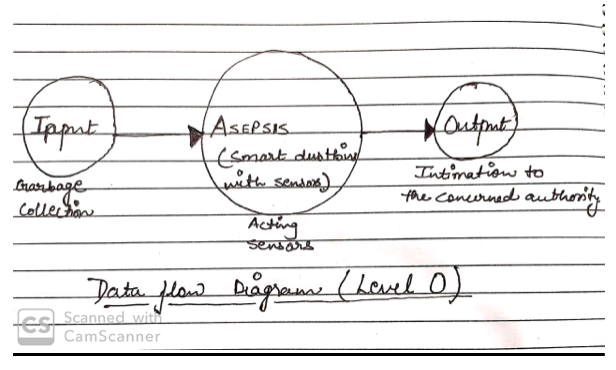 Input
Garbage
Collection
ASEPSIS
(Smart dustbin
with sensors)
Acting
Sensors
Output
Intimation to
the concerned authority
Data flow Diagram (Level 0)
CS Scanned with
CamScanner